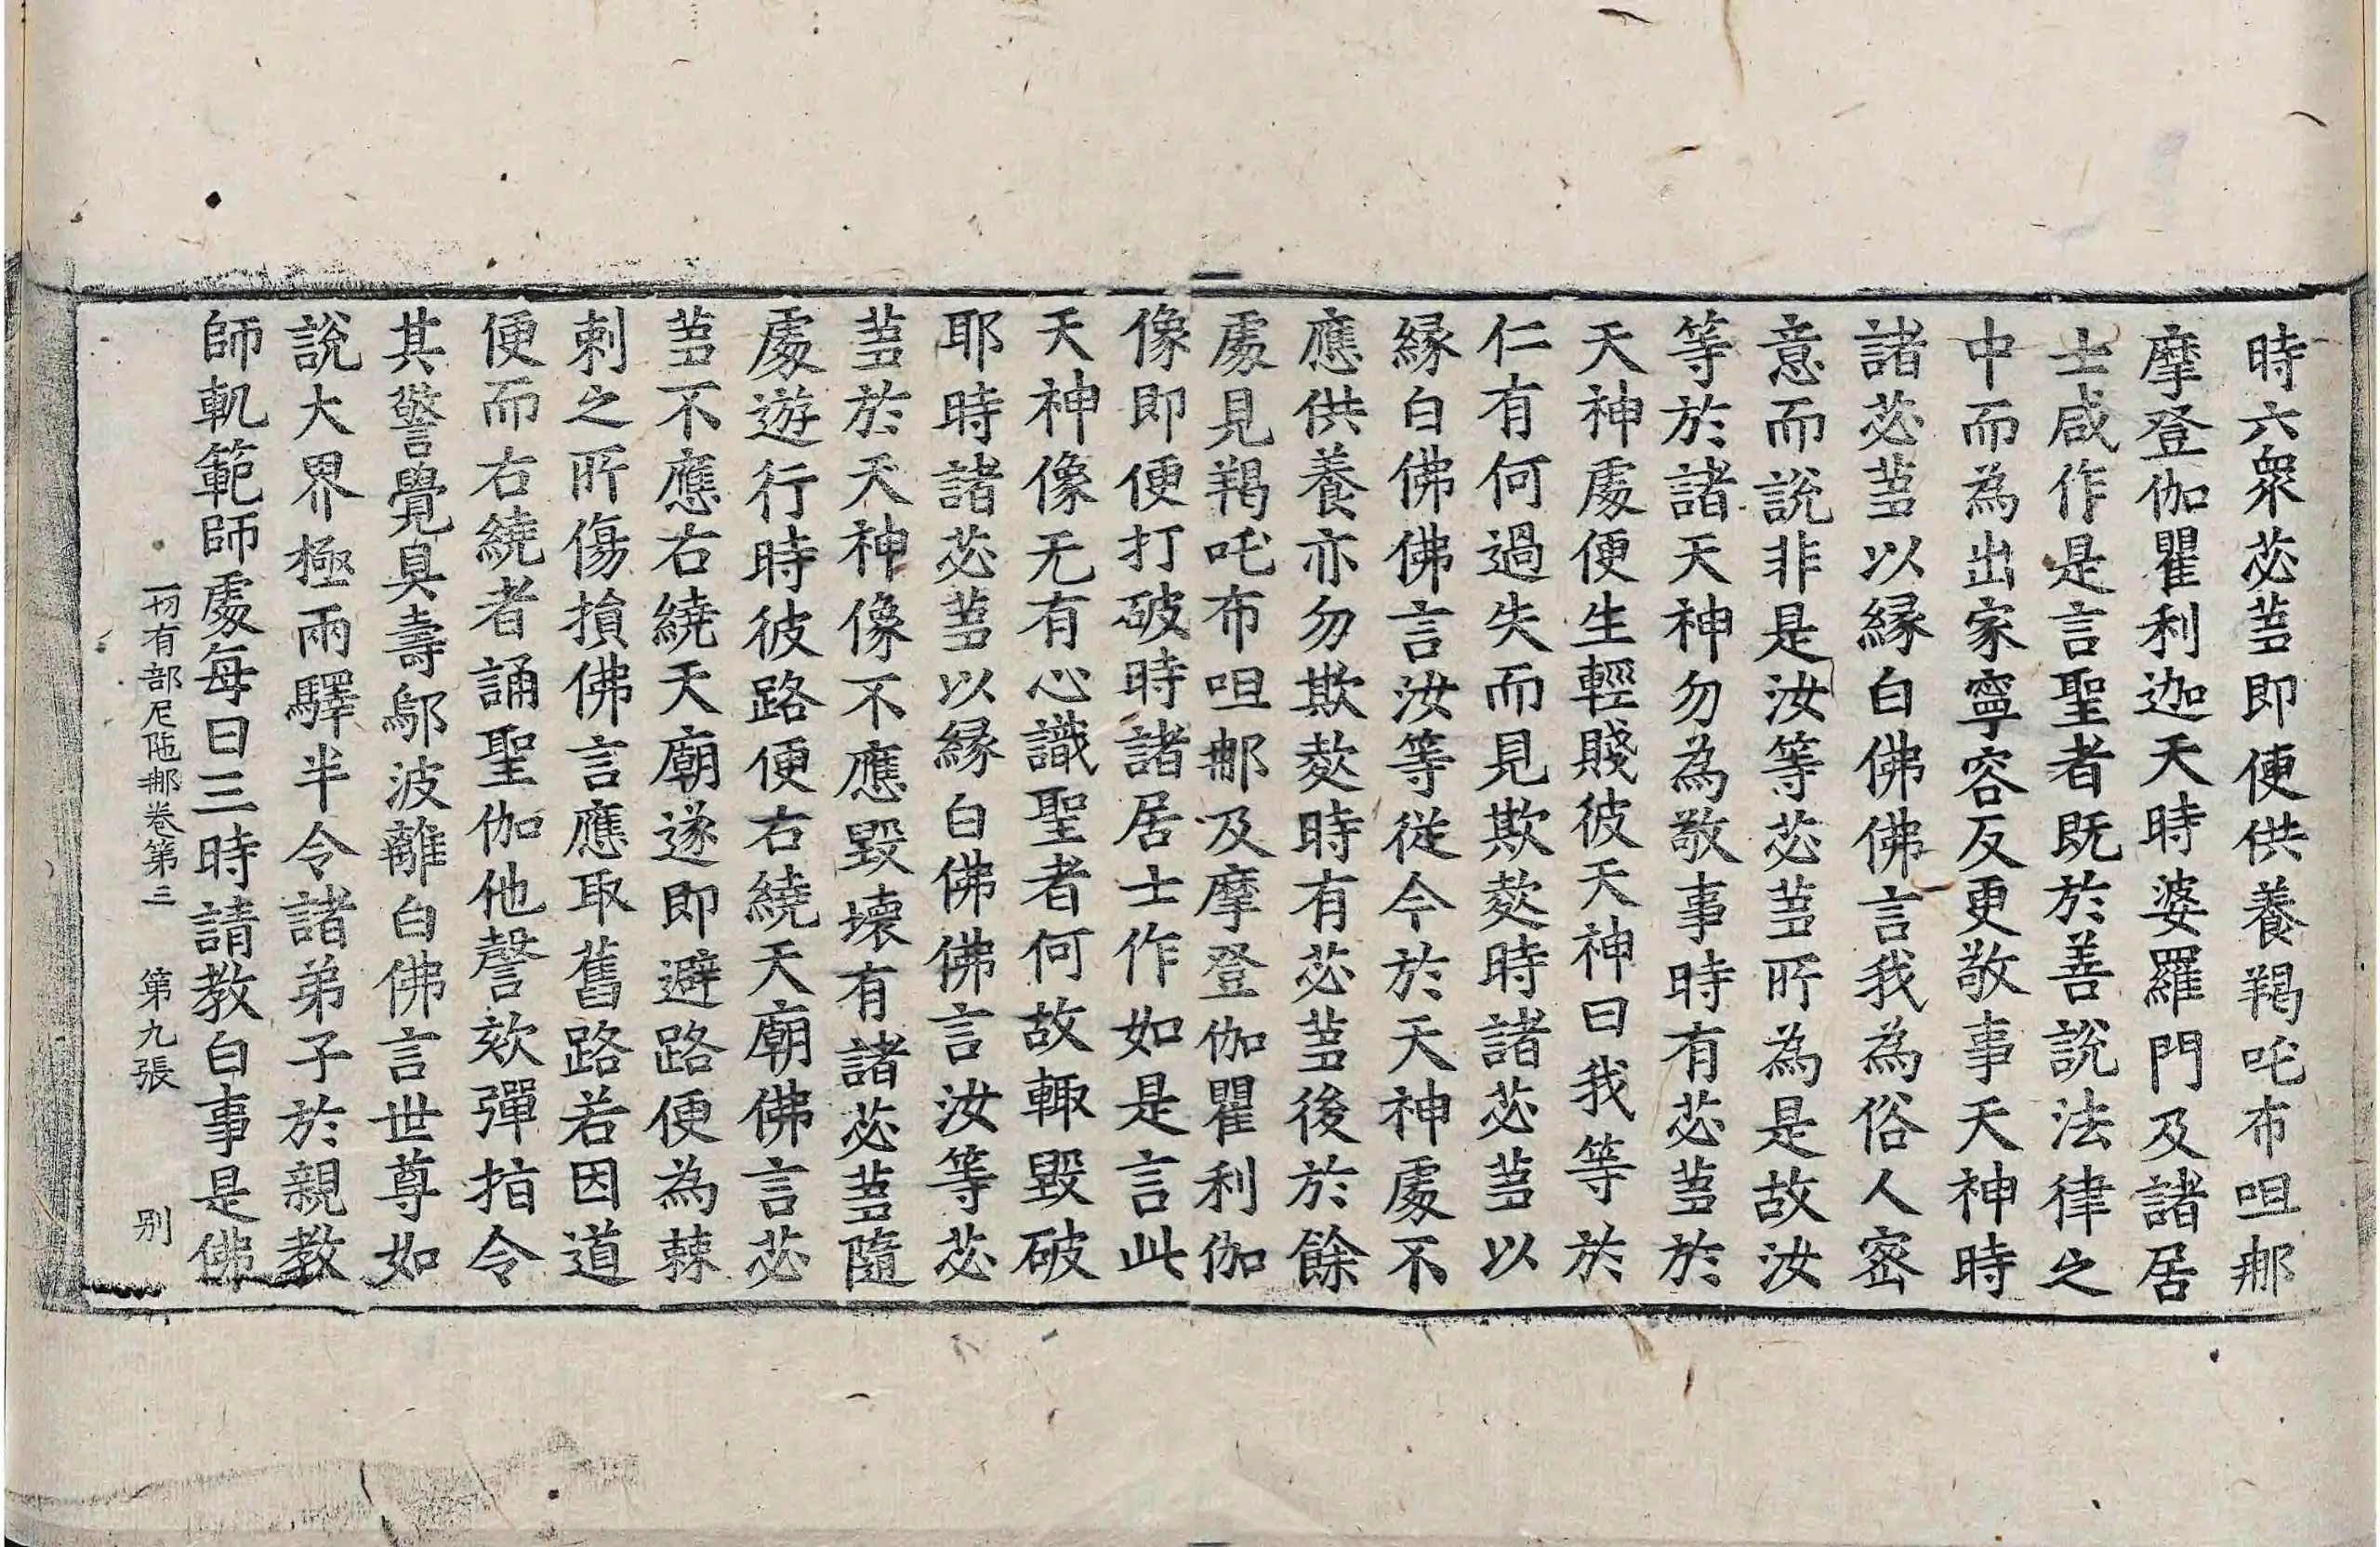 時六衆苾蒭即便供養羯吒布呾那
摩登伽瞿利迦天時婆羅門及諸居
士咸作是言聖者既於善說法律之
中而為出家寧容反更敬事天神時
諸苾蒭以緣白佛佛言我為俗人密
意而說非是汝等苾蒭所為是故汝
等於諸天神勿為敬事時有苾蒭於
天神處便生輕賤彼天神曰我等於
仁有何過失而見欺欻時諸苾蒭以
緣白佛佛言汝等從今於天神處不
應供養亦勿欺欻時有苾蒭後於餘
處見羯吒布呾那及摩登伽瞿利伽
像即便打破時諸居士作如是言此
天神像无有心識聖者何故輙毀破
耶時諸苾蒭以緣白佛佛言汝等苾
蒭於天神像不應毀壞有諸苾蒭隨
處遊行時彼路便右繞天廟佛言苾
蒭不應右繞天廟遂即避路便為棘
刺之所傷損佛言應取舊路若因道
便而右繞者誦聖伽他謦欬彈指令
其警覺具壽鄔波離白佛言世尊如
說大界極兩驛半令諸弟子於親教
師軌範師處每日三時請教白事是佛
一切有部尼陁那卷第三 第九張 别